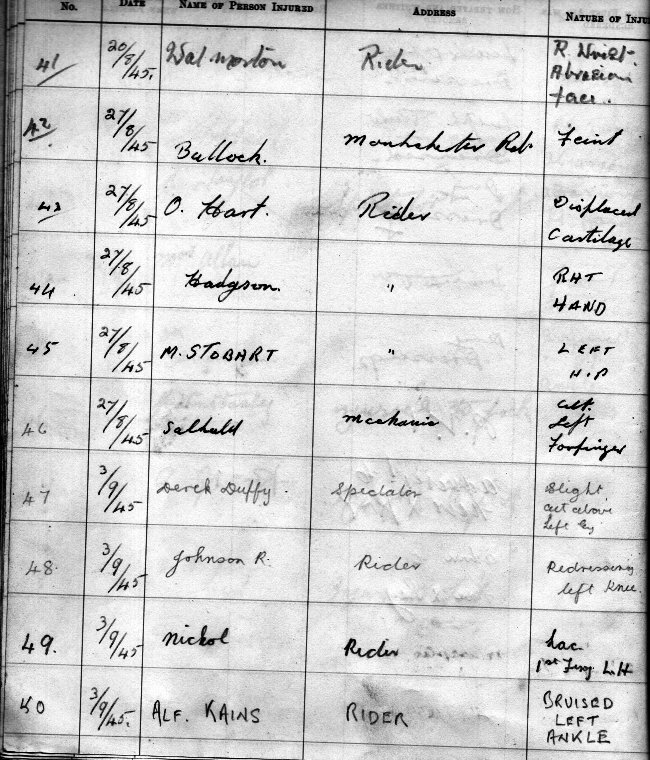 No. DATE NAME OF PERSON INJURED ADDRESS NATURE OF INJU
41 20/8/45. Wal Morton Rider R. Wrist.
Abrasion
face.
42 27/8/45 Bullock. Manchester Rd. Feint
43 27/8/45 O. Hart. Rider Displaced
Cartilage
44 27/8/45 Hodgson. " RHT
HAND
45 27/8/45 M. STOBART " LEFT
HIP
46 27/8/45 Mechanic cut.
Left
Forfinger
47 3/9/45 Derek Duffy. Spectator Slight
cut above
left Ey
48 3/9/45 Johnson R. Rider Redressing
left Knee.
49. 3/9/45 Nickol Rider Lac.
1st Fing L.H
50 3/9/45. ALF. KAINS RIDER BRUISED
LEFT
ANKLE